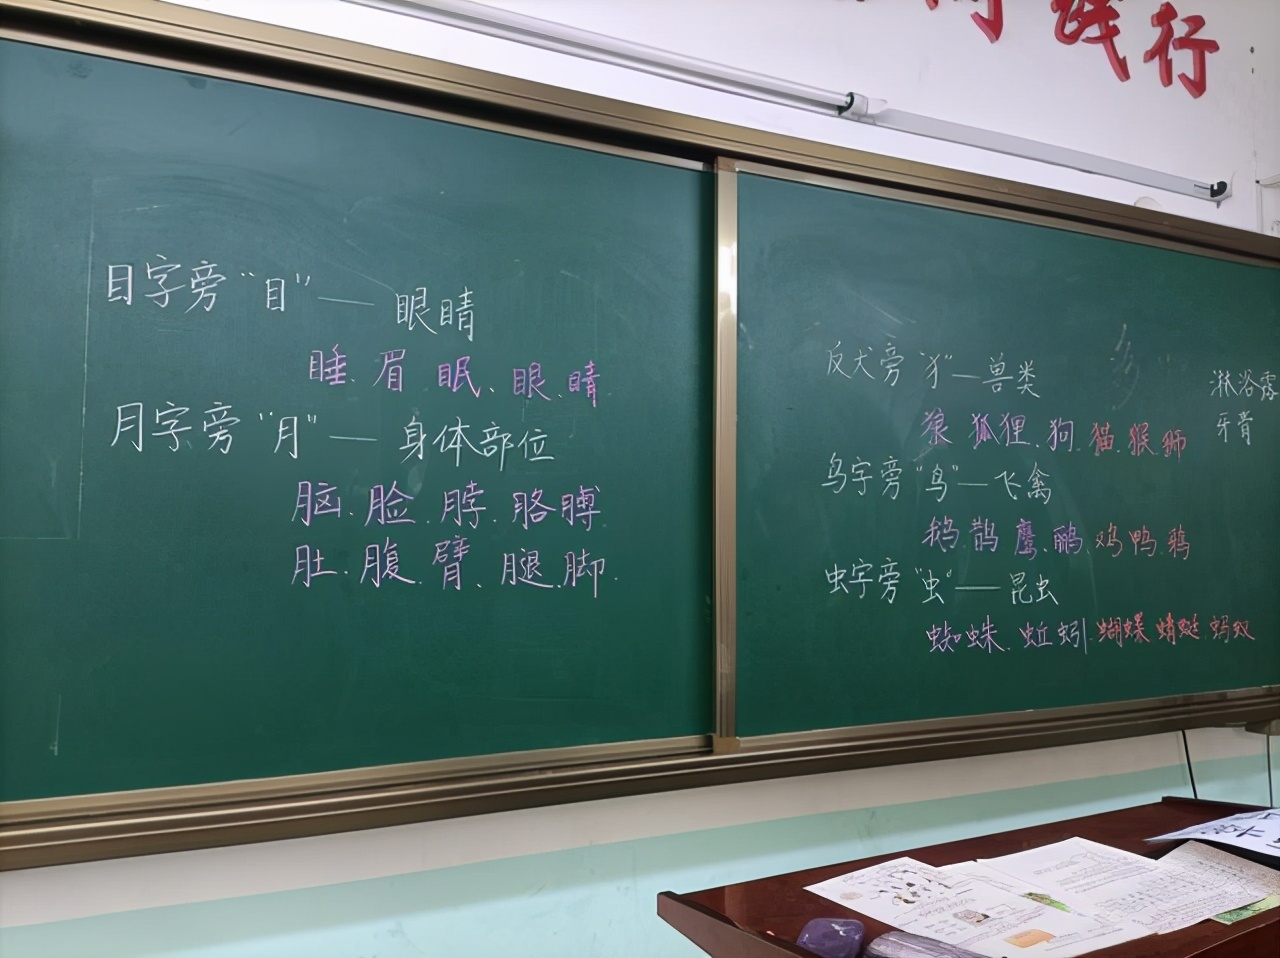 践行
目字旁“目”—— 眼睛
睡、眉 眠、眼、睛
月字旁“月”—— 身体部位
脑、脸、脖、胳膊、
肚、腹、臂、腿、脚、
反犬旁“犭”—兽类
狼 狐狸、狗、猫、猴、狮
鸟字旁“鸟”—飞禽
鹅、鹊、鹰、鹂、鸡、鸭、鸦
虫字旁“虫”—— 昆虫
蜘蛛、蚯蚓、蝴蝶、蜻蜓、蚂蚁
淋浴露
牙膏